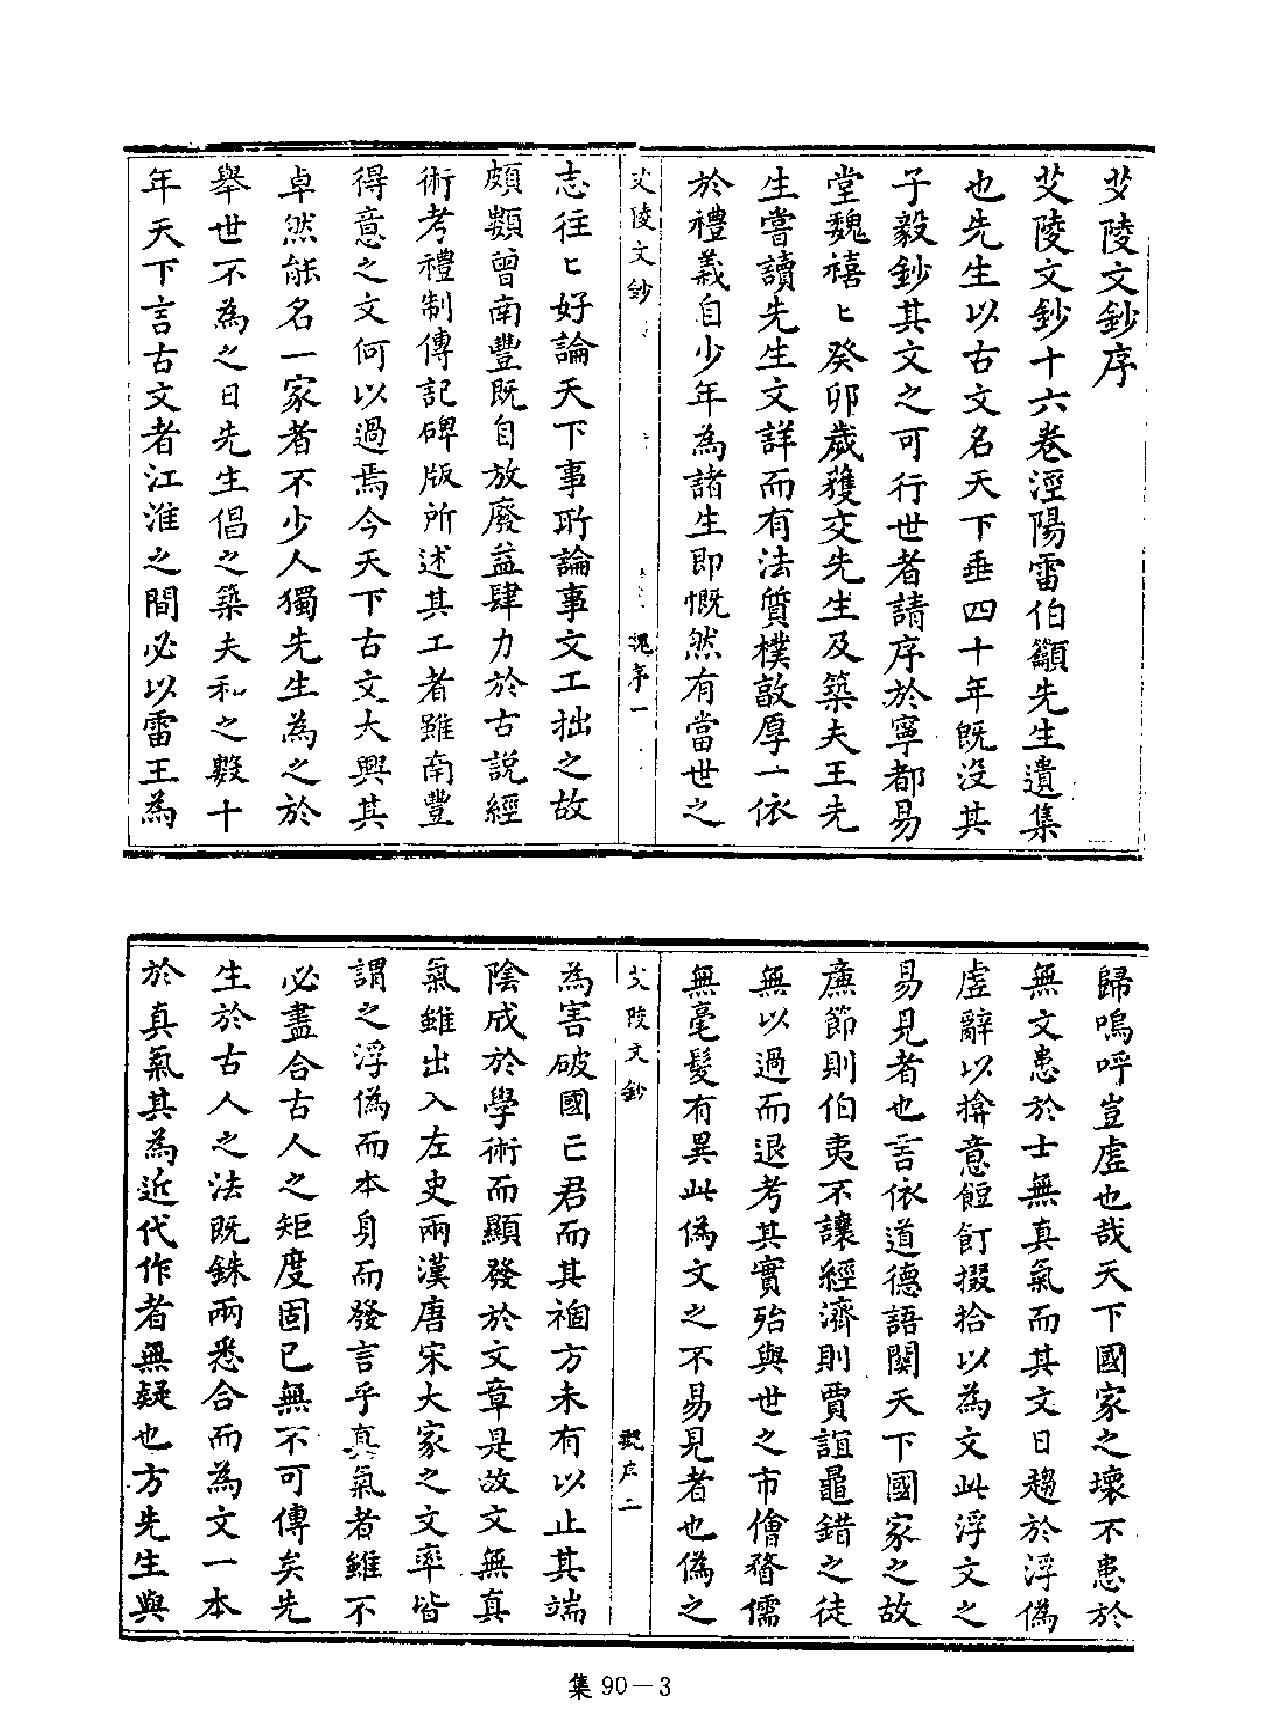 艾陵文鈔序
艾陵文鈔十六卷涇陽雷伯籲先生遺集
也先生以古文名天下垂四十年既沒其
子毅鈔其文之可行世者請序於寧都易
堂魏禧〻癸卯歲獲交先生及築夫王先
生嘗讀先生文詳而有法質樸敦厚一依
於禮義自少年為諸生即慨然有當世之
艾陵文鈔
魏序一
志往〻好論天下事所論事文工拙之故
頗類曾南豐既自放廢益肆力於古說經
術考禮制傳記碑版所述其工者雖南豐
得意之文何以過焉今天下古文大興其
卓然能名一家者不少人獨先生為之於
舉世不為之日先生倡之築夫和之數十
年天下言古文者江淮之間必以雷王為
歸嗚呼豈虛也哉天下國家之壞不患於
無文患於士無真氣而其文日趨於浮偽
虛辭以揜意餖飣掇拾以為文此浮文之
易見者也言依道德語關天下國家之故
廉節則伯夷不讓經濟則賈誼鼂錯之徒
無以過而退考其實殆與世之市儈瞀儒
無毫髮有異此偽文之不易見者也偽之
艾陵文鈔
魏序二
為害破國亡君而其禍方未有以止其端
陰成於學術而顯發於文章是故文無真
氣雖出入左史兩漢唐宋大家之文率皆
謂之浮偽而本身而發言乎真氣者雖不
必盡合古人之矩度固已無不可傳矣先
生於古人之法既銖兩悉合而為文一本
於真氣其為近代作者無疑也方先生與
集90—3